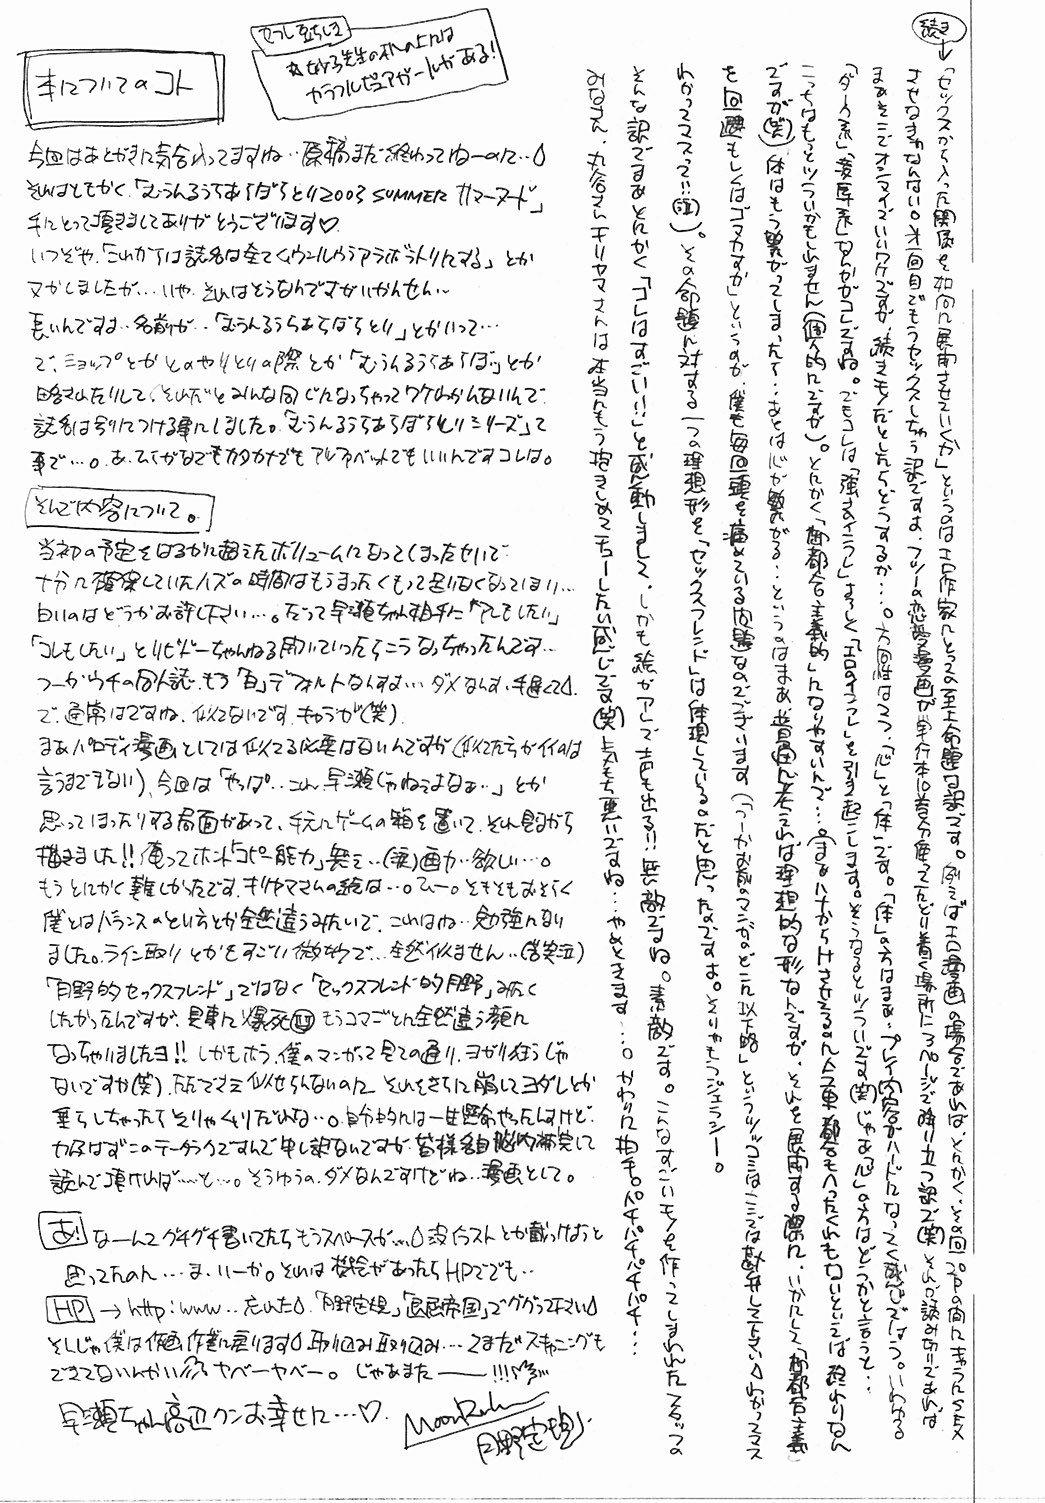 続き
「セックスから入った関係を如何に展開させていくか」というのはエロ作家にとっての至上命題な訳です。例えばエロ漫画の場合であれば、とにかく、その回20Pの内にキャラにSEX
させなきゃなんない。第一回目でもうセックスしちゃう訳ですよ、フツーの恋愛漫画が単行本10巻分使ってたどり着く場所に20ページで降り立つ訳で(笑)それが読み切りであれば
まあそこでオシマイでいいワケですが、続きモノだとしたらどうするか…。方向性は2つ、「心」と「体」です。「体」の方はまあ、プレイ内容がハードになってく感じで1つ。いわゆる
「ダーク系」「凌辱系」なんかがコレですね。でもコレは「強さのインフレ」よろしく「エロのインフレ」を引き起こします。そうなるとツライです(笑)じゃあ「心」の方はどうかと言うと…
こっちはもっとツライかもしれません(個人的にですが)。とにかく「御都合主義的」になりやすいんで…。
ですが(笑)体はもう繋がってしまったって…あとは心が繋がる…というのはまあ、普通に考えれば理想的な形なんですが、それを展開する際に、いかにして「御都合主義」
を回避もしくはゴマカすか」というのが、僕も毎回頭を痛めている内題なのでございます(「つーかお前のマンガのどこに以下略」というツッコミはここでは勘弁して下さい わかってマス
わかってマスって!!(泣))。その命題に対する一つの理想形を、「セックスフレンド」は体現しているのだと思ったのですよ。そりゃもうジェラシー。
そんな訳でまあとにかく「コレはすごい!!」と感動しまして、しかも絵がアレで声も出る!!無敵ですね。素敵です。こんなすごいモノを作ってしまわれたスタッフの
みなさん、丸谷さんキリヤマさんは本当にもう抱きしめてチューしたい感じです(笑)気もち悪いですね…やめときます…。かわりに拍手。パチパチパチパチパチ…
☆妙子先生の机の上には
カラフルピュアガールがある!
本についてのコト
今回はあとがきに気合入ってますね…原稿まだ終わってねーのに…
それはともかく、「むぅんるぅらあらばらとり2003 SUMMER サマーヌード」
手にとって頂きましてありがとうございます♡
いつぞや、「これからは誌名は全てムゥンルゥラアラボラトリにする」とか
ヌかしましたが…いや、それはそうなんですがいかんせん…
長いんですよ…名前が…「むぅんるぅらあらばらとり」とかいって…
で、ショップとかとのやりとりの際とか「むぅんるぅらあらぼ」とか
略されたりして、それだとみんな同じになっちゃってワケわかんないんで、
誌名は別につける事にしました。「むぅんるぅらあらばらとりシリーズ」って
事で…。あ、ひらがなでもカタカナでもアルファベットでもいいんですコレは。
そんで内容について。
当初の予定をはるかに超えたボリュームになってしまったせいで
十分に確保していたハズの時間はもうまったくもって足りなくなってしまい…
白いのはどうかお許し下さい…。だって早瀬ちゃん相手に「アレもしたい」
「コレもしたい」とリビドーちゃんねる開いていったらこうなっちゃったんです…
つーかウチの同人誌、もう「白」デフォルトなんすよ…ダメなんす、手遅くて
で、通常はですね、似てないです、キャラが(笑)
まあパロディ漫画としては似てる必要はないんですが(似てた方がイイのは
言うまでもない)、今回は「やっぱ…こんな早瀬じゃねぇよなぁ…」とか
思ってしまったりする局面があって、手元にゲームの箱を置いて、それ見ながら
描きました!!俺ってホント「コピー能力」無え…(涙)画力…欲しい…。
もうとにかく難しかったです、キリヤマさんの絵は…。ふー。そもそもおそらく
僕とはバランスのとり方とか全然違うみたいで、これはね…勉強になり
ました。ライン取りとかもすごい微妙で…全然似ません…(苦笑泣)
「月野的セックスフレンド」ではなく「セックスフレンド的月野」みたく
したかったんですが、見事に爆死 もうコマごとに全然違う顔に
なっちゃいましたヨ!!しかもホラ、僕のマンガって見ての通り、ヨガリ狂うじゃ
ないですか(笑)ただでさえ似せらんないのに、それをさらに崩してヨダレとか
垂らしちゃったらそりゃムリだわな…。自分的には一生懸命やったんすけど、
力及ばずこのテータラクですんで申し訳ないですが、皆様各自脳内補完して
読んで頂ければ……と…。そうゆうの、ダメなんですけどね…漫画として。
あ! なーんてグチグチ書いてたらもうスペースが… 没イラストとか載っけようと
思ってたのに…ま、いーか。それは機会があったらHPででも…
HP → http:www…忘れた 「月野定規」「 帝国」でググって下さい
そんじゃ僕は作画作業に戻ります 取り込み取り込み…てまだスキャニングも
できてないんかい ヤベーヤベー。じゃあまたーー!!!
早瀬ちゃん高辺クンお幸せに…♡
月野定規